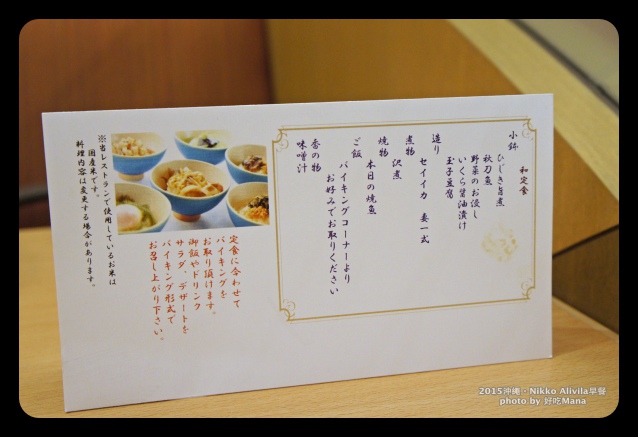 和定食
小鉢
ひじき旨煮
秋刀魚
野菜のお浸し
いくら醤油漬け
玉子豆腐
造り
セイイカ 妻一式
煮物
沢煮
焼物
本日の焼魚
ご飯
バイキングコーナーより
お好みでお取りください
香の物
味噌汁
定食に合わせて
バイキングを
お取り頂けます。
御飯やドリンク
サラダ、デザートを
バイキング形式で
お召し上がり下さい。
※当レストランで使用しているお米は
国産米です。
料理内容は変更する場合があります。
2015沖繩・Nikko Alivila早餐
photo by 好吃Mana